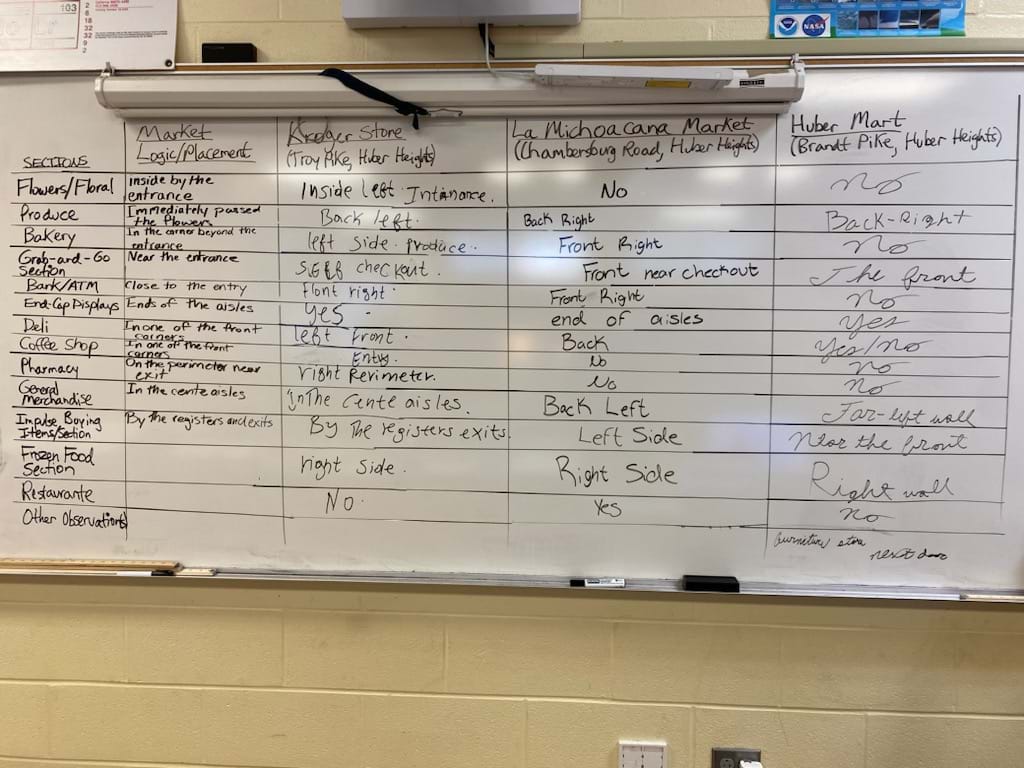 103
2
8
18
32
32
9
2
NOAA
NASA
SECTIONS
Market
Logic/Placement
Kroger Store
(Troy Pike, Huber Heights)
La Michoacana Market
(Chambersburg Road, Huber Heights)
Huber Mart
(Brandt Pike, Huber Heights)
Flowers/Floral
Inside by the
entrance
Inside left Intanance.
No
No
Produce
Immediately passed
the flowers
Back left.
Back Right
Back-Right
Bakery
In the corner beyond the
entrance
left side. Produce.
Front Right
No
Grab-and-Go
Section
Near the entrance
self checkout.
Front near checkout
The front
Bank/ATM
Close to the entry
Front right.
Front Right
No
End-Cap Displays
Ends of the aisles
Yes
end of aisles
Yes
Deli
In one of the front
corners
left Front.
Back
Yes/No
Coffee Shop
In one of the front
corners
Entry.
No
No
Pharmacy
On the perimeter near
exit
right Perimeter.
No
No
General
Merchandise
In the cente aisles
In The Cente aisles.
Back Left
Far-left wall
Impulse Buying
Items/Section
By the registers and exits
By The registers exits
Left Side
Near the front
Frozen Food
Section
right side.
Right Side
Right wall
Restaurante
No.
Yes
No
Other Observations
furniture store
next door